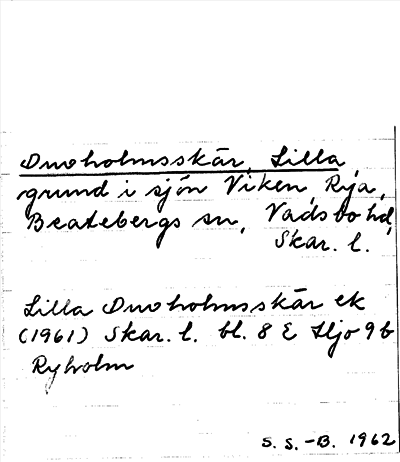 Duvholmsskär, Lilla,
grund i sjön Viken, Rya,
Beatebergs sn, Vadsbo hd,
Skar. l.
Lilla Duvholmsskär ek
(1961) Skar. l. bl. 8 E Hjo 9b
Ryholm
S. S.-B. 1962